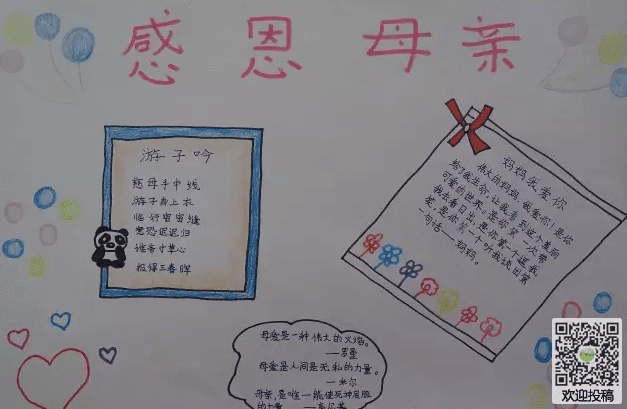 感恩母亲
游子吟
慈母手中线
游子身上衣
临行密密缝
意恐迟迟归
谁言寸草心
报得三春晖
妈妈我爱你
伟大的妈妈,我爱你!是你
给了我生命,让我看到这个美丽
可爱的世界;是你第一次带
我去看日出,是你第一个逗我
笑,是你第一个听我说出第
一句话——妈妈。
母爱是一种伟大的火焰。
——罗曼
母爱是人间是无私的力量。
——米尔
母亲,是唯一能使死神屈服
的力量——高尔基
欢迎投稿